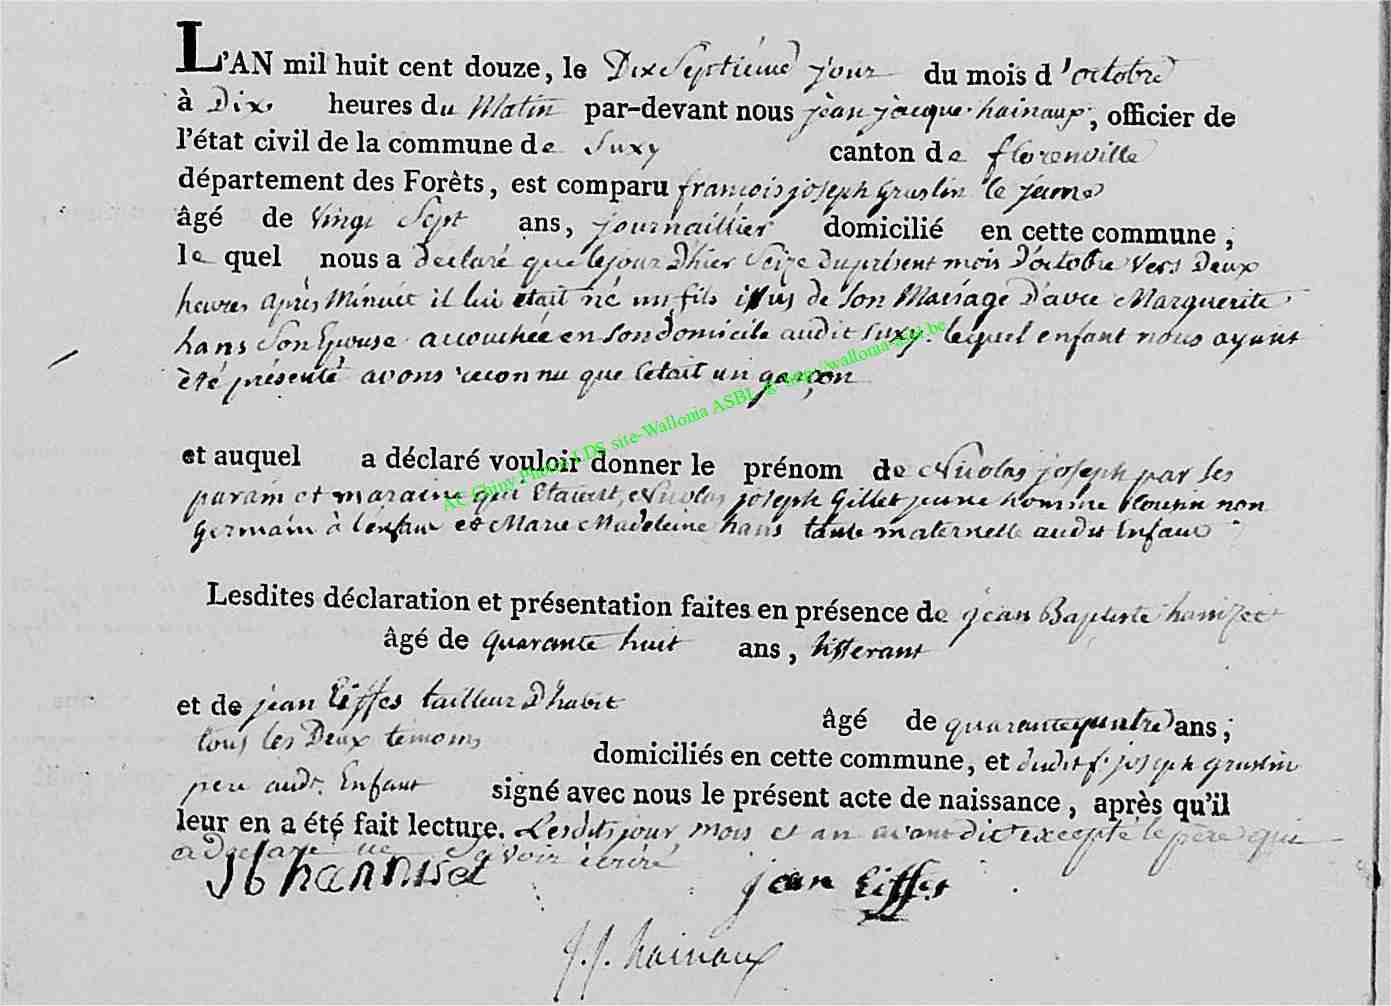 L'AN mil huit cent douze, le Dix Septiéme jour du mois d'octobre
à Dix heures du Matin par-devant nous jean jacque hainaux, officier de
l'état civil de la commune de Suxy canton de florenville
département des Forêts, est comparu francois joseph Gruslin le jeune
âgé de vingt Sept ans, journaillier domicilié en cette commune;
le quel nous a déclaré que le jour D'hier Seize du présent mois D'octobre vers Deux
heures après Minuit il lui etait né un fils issus de Son Mariage D'avec Marguerite
hans Son Epouse accouchée en Son domicile audit Suxy. lequel enfant nous ayant
été présenté avons reconnu que Cétait un garçon
et auquel a déclaré vouloir donner le prénom de Nicolas joseph par les
parain et maraine qui Etaient, Nicolas joseph Gillet jeune homme Cousin non
Germain à l'enfant et Marie Madeleine hans tante maternelle audit Enfant
Lesdites déclaration et présentation faites en présence de jean Baptiste
âgé de quarante huit ans, tisserant
et de jean Eiffes tailleur D'habit
âgé de quarante quatre ans;
tous les Deux témoins domiciliés en cette commune, et dudit f. joseph Gruslin
pere audt. Enfant signé avec nous le présent acte de naissance, après qu'il
leur en a été fait lecture. Lesdits jour mois et an avant dit excepté le père qui
a déclaré ne Savoir écrire
jean Eiffes
J. J. hainaux
AC Chiny Photos LDS site-Wallonia ASBL @ http://wallonia-asbl.be